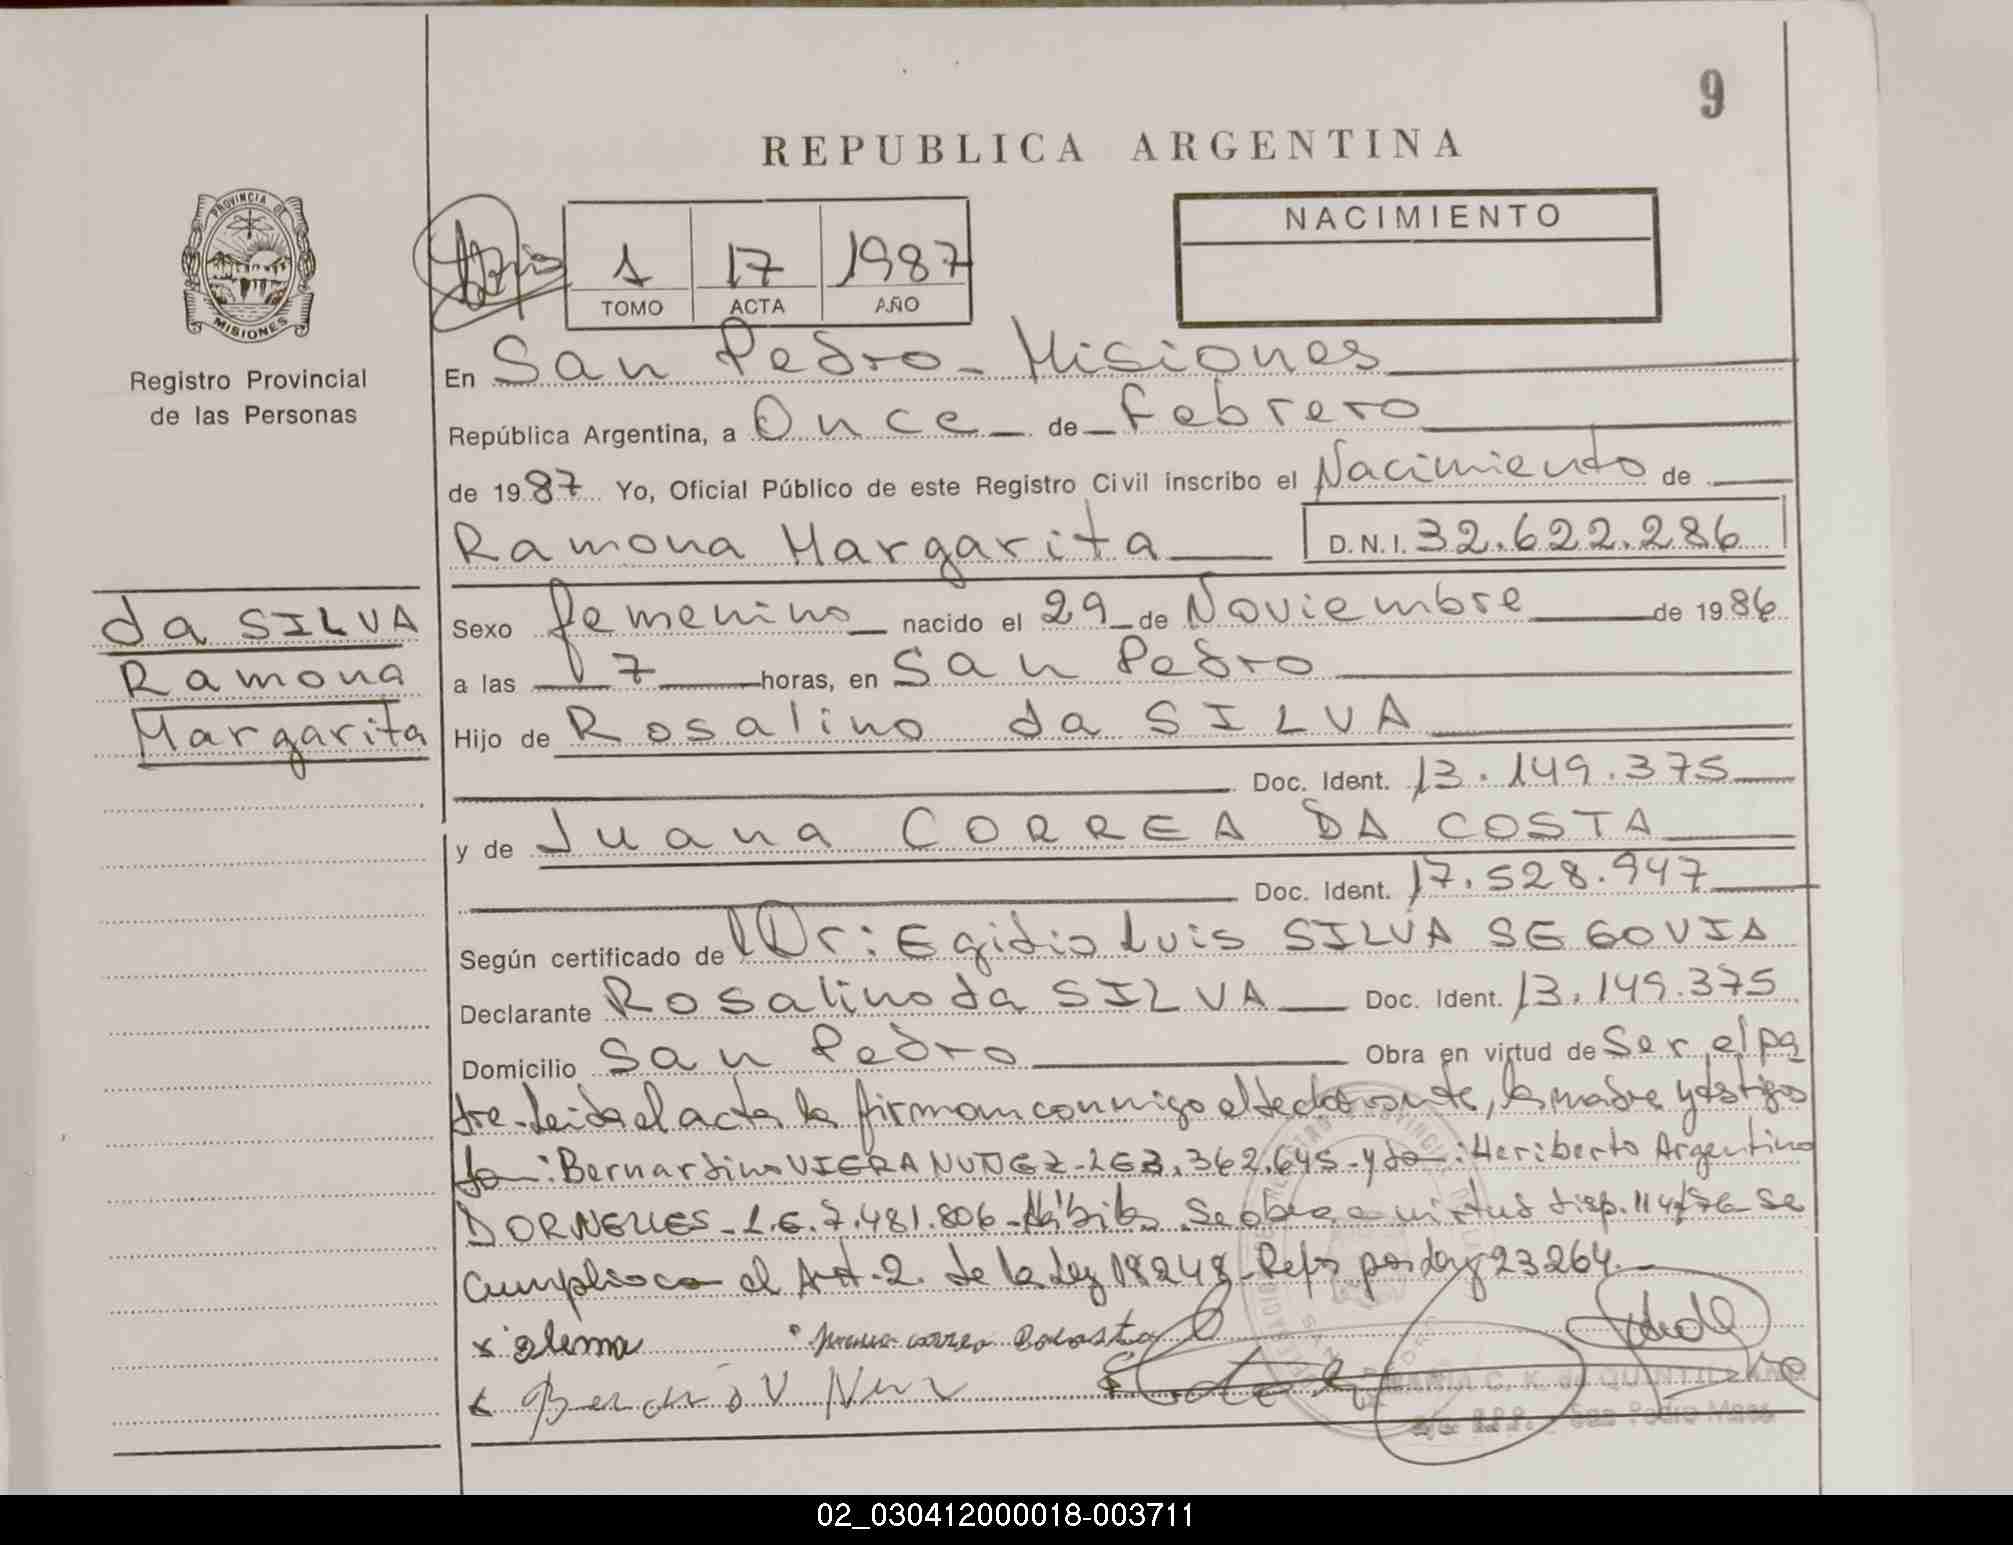 9
REPUBLICA ARGENTINA
PROVINCIA DE
MISIONES
Registro Provincial
de las Personas
1 17 1987
TOMO ACTA AÑO
NACIMIENTO
En San Pedro - Misiones
República Argentina, a Once de Febrero
de 1987 Yo, Oficial Público de este Registro Civil inscribo el Nacimiento de
Ramona Margarita D.N.I. 32.622.286
da SILVA
Ramona
Margarita
Sexo femenino nacido el 29 de Noviembre de 1986
a las 7 horas, en San Pedro
Hijo de Rosalino da SILVA
Doc. Ident. 13.149.375
y de Juana CORREA DA COSTA
Doc. Ident. 17.528.947
Según certificado de Dr: Egidio Luis SILVA SEGOVIA
Declarante Rosalino da SILVA Doc. Ident. 13.149.375
Domicilio San Pedro Obra en virtud de Ser el pa
dre - Leida el acta la firman conmigo el declarante, la madre y testigos
: Bernardino VIERA NUÑEZ - 362.645 - y : Heriberto Argentino
DORNELLES - L.E. 7.481.806 - Hábiles Se obra en virtud disp. 114/76 - Se
Cumplio con el Art. 2. de la Ley 18248 - Ref. por Ley 23264
MARIA C. K. de QUINTILLANO
San Pedro Mnes
02_030412000018-003711